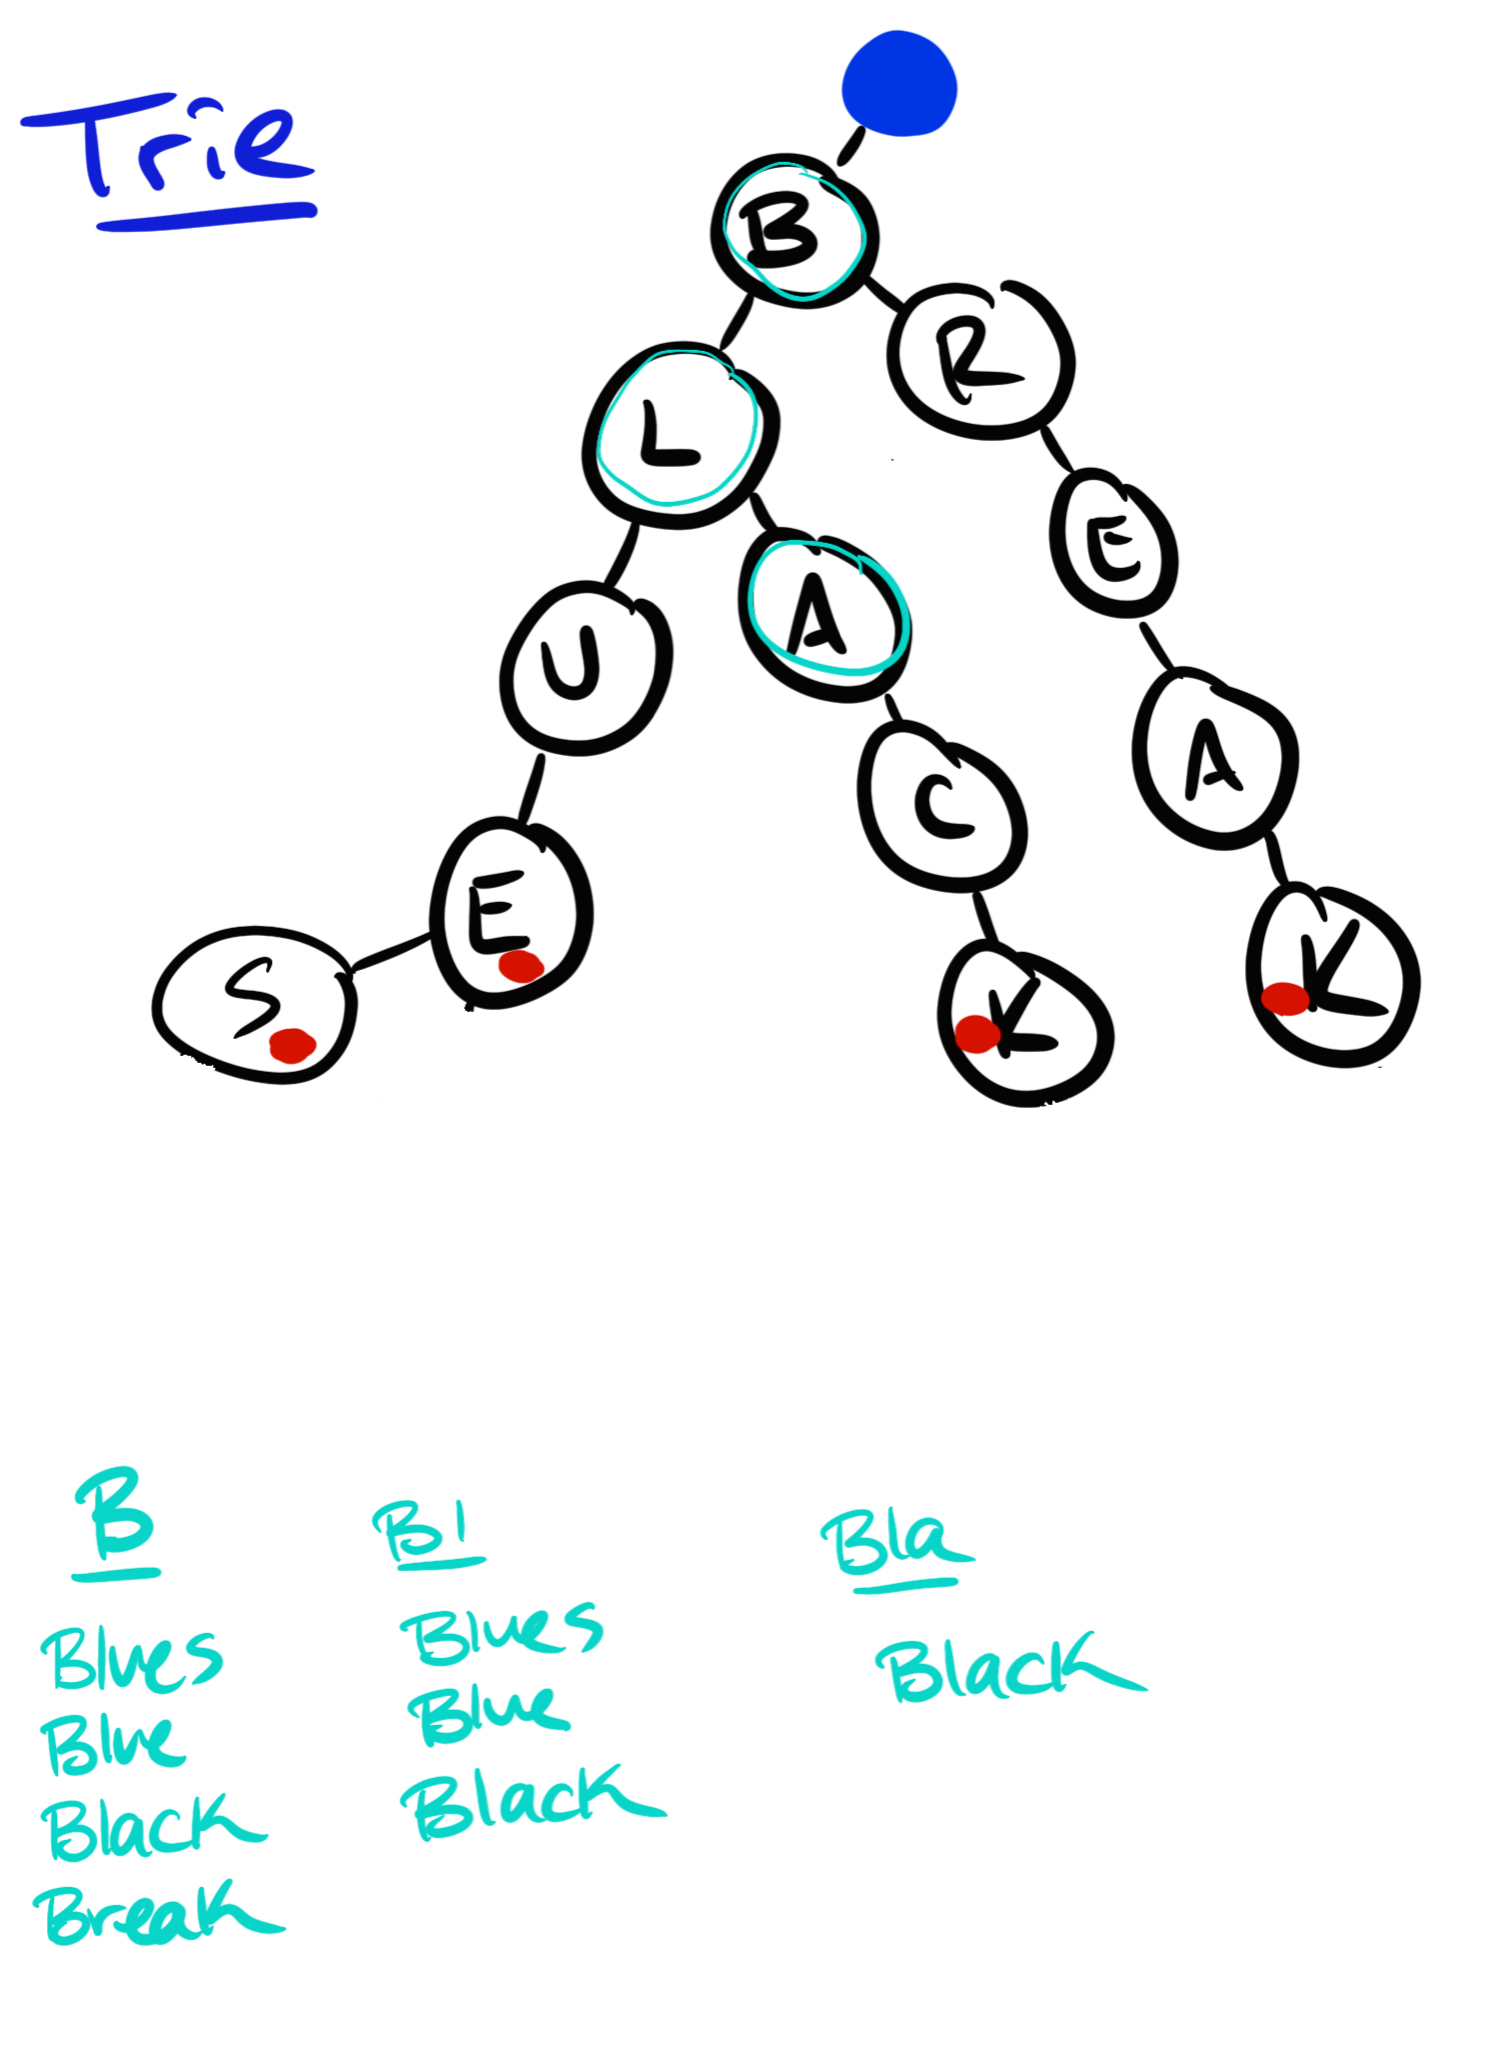 Trie
B
R
L
E
A
U
A
C
E
K
S
K
B
Blues
Blue
Black
Break
Bl
Blues
Blue
Black
Bla
Black